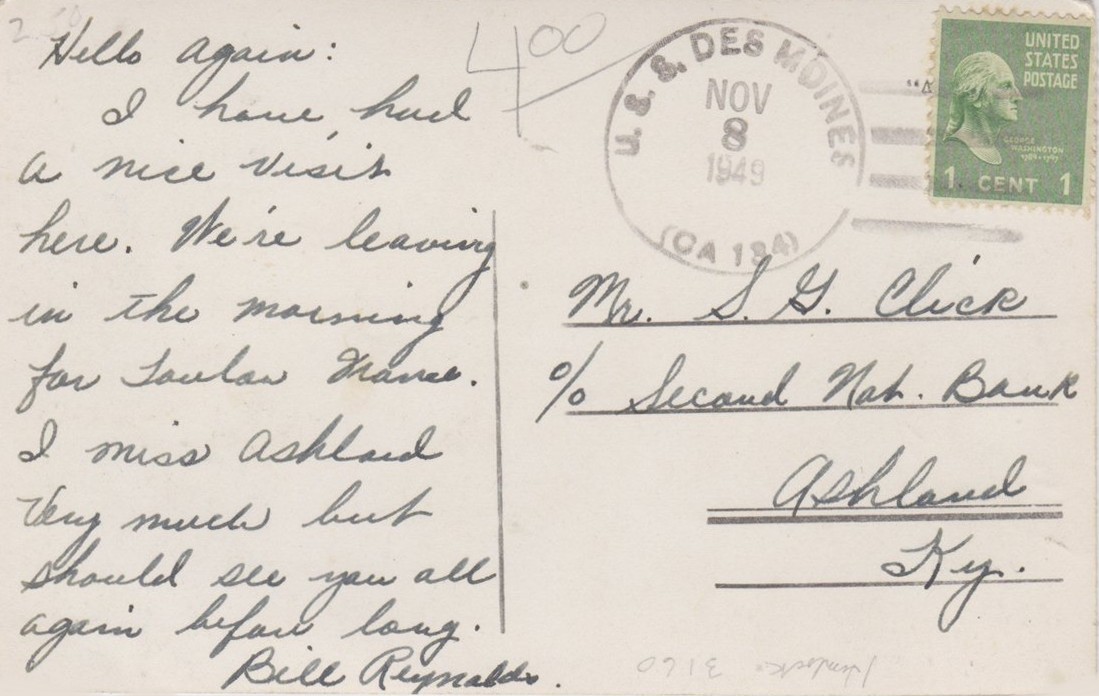 Hello again:
I have had
a nice visit
here. We're leaving
in the morning
for Toulon France.
I miss Ashland
Very much but
should see you all
again before long.
Bill Reynolds.
400
U. S. S. DES MOINES
NOV
8
1949
(CA 134)
UNITED
STATES
POSTAGE
GEORGE
WASHINGTON
1 CENT 1
Mr. S. G. Click
c/o Second Nat. Bank
Ashland
Ky.
3160